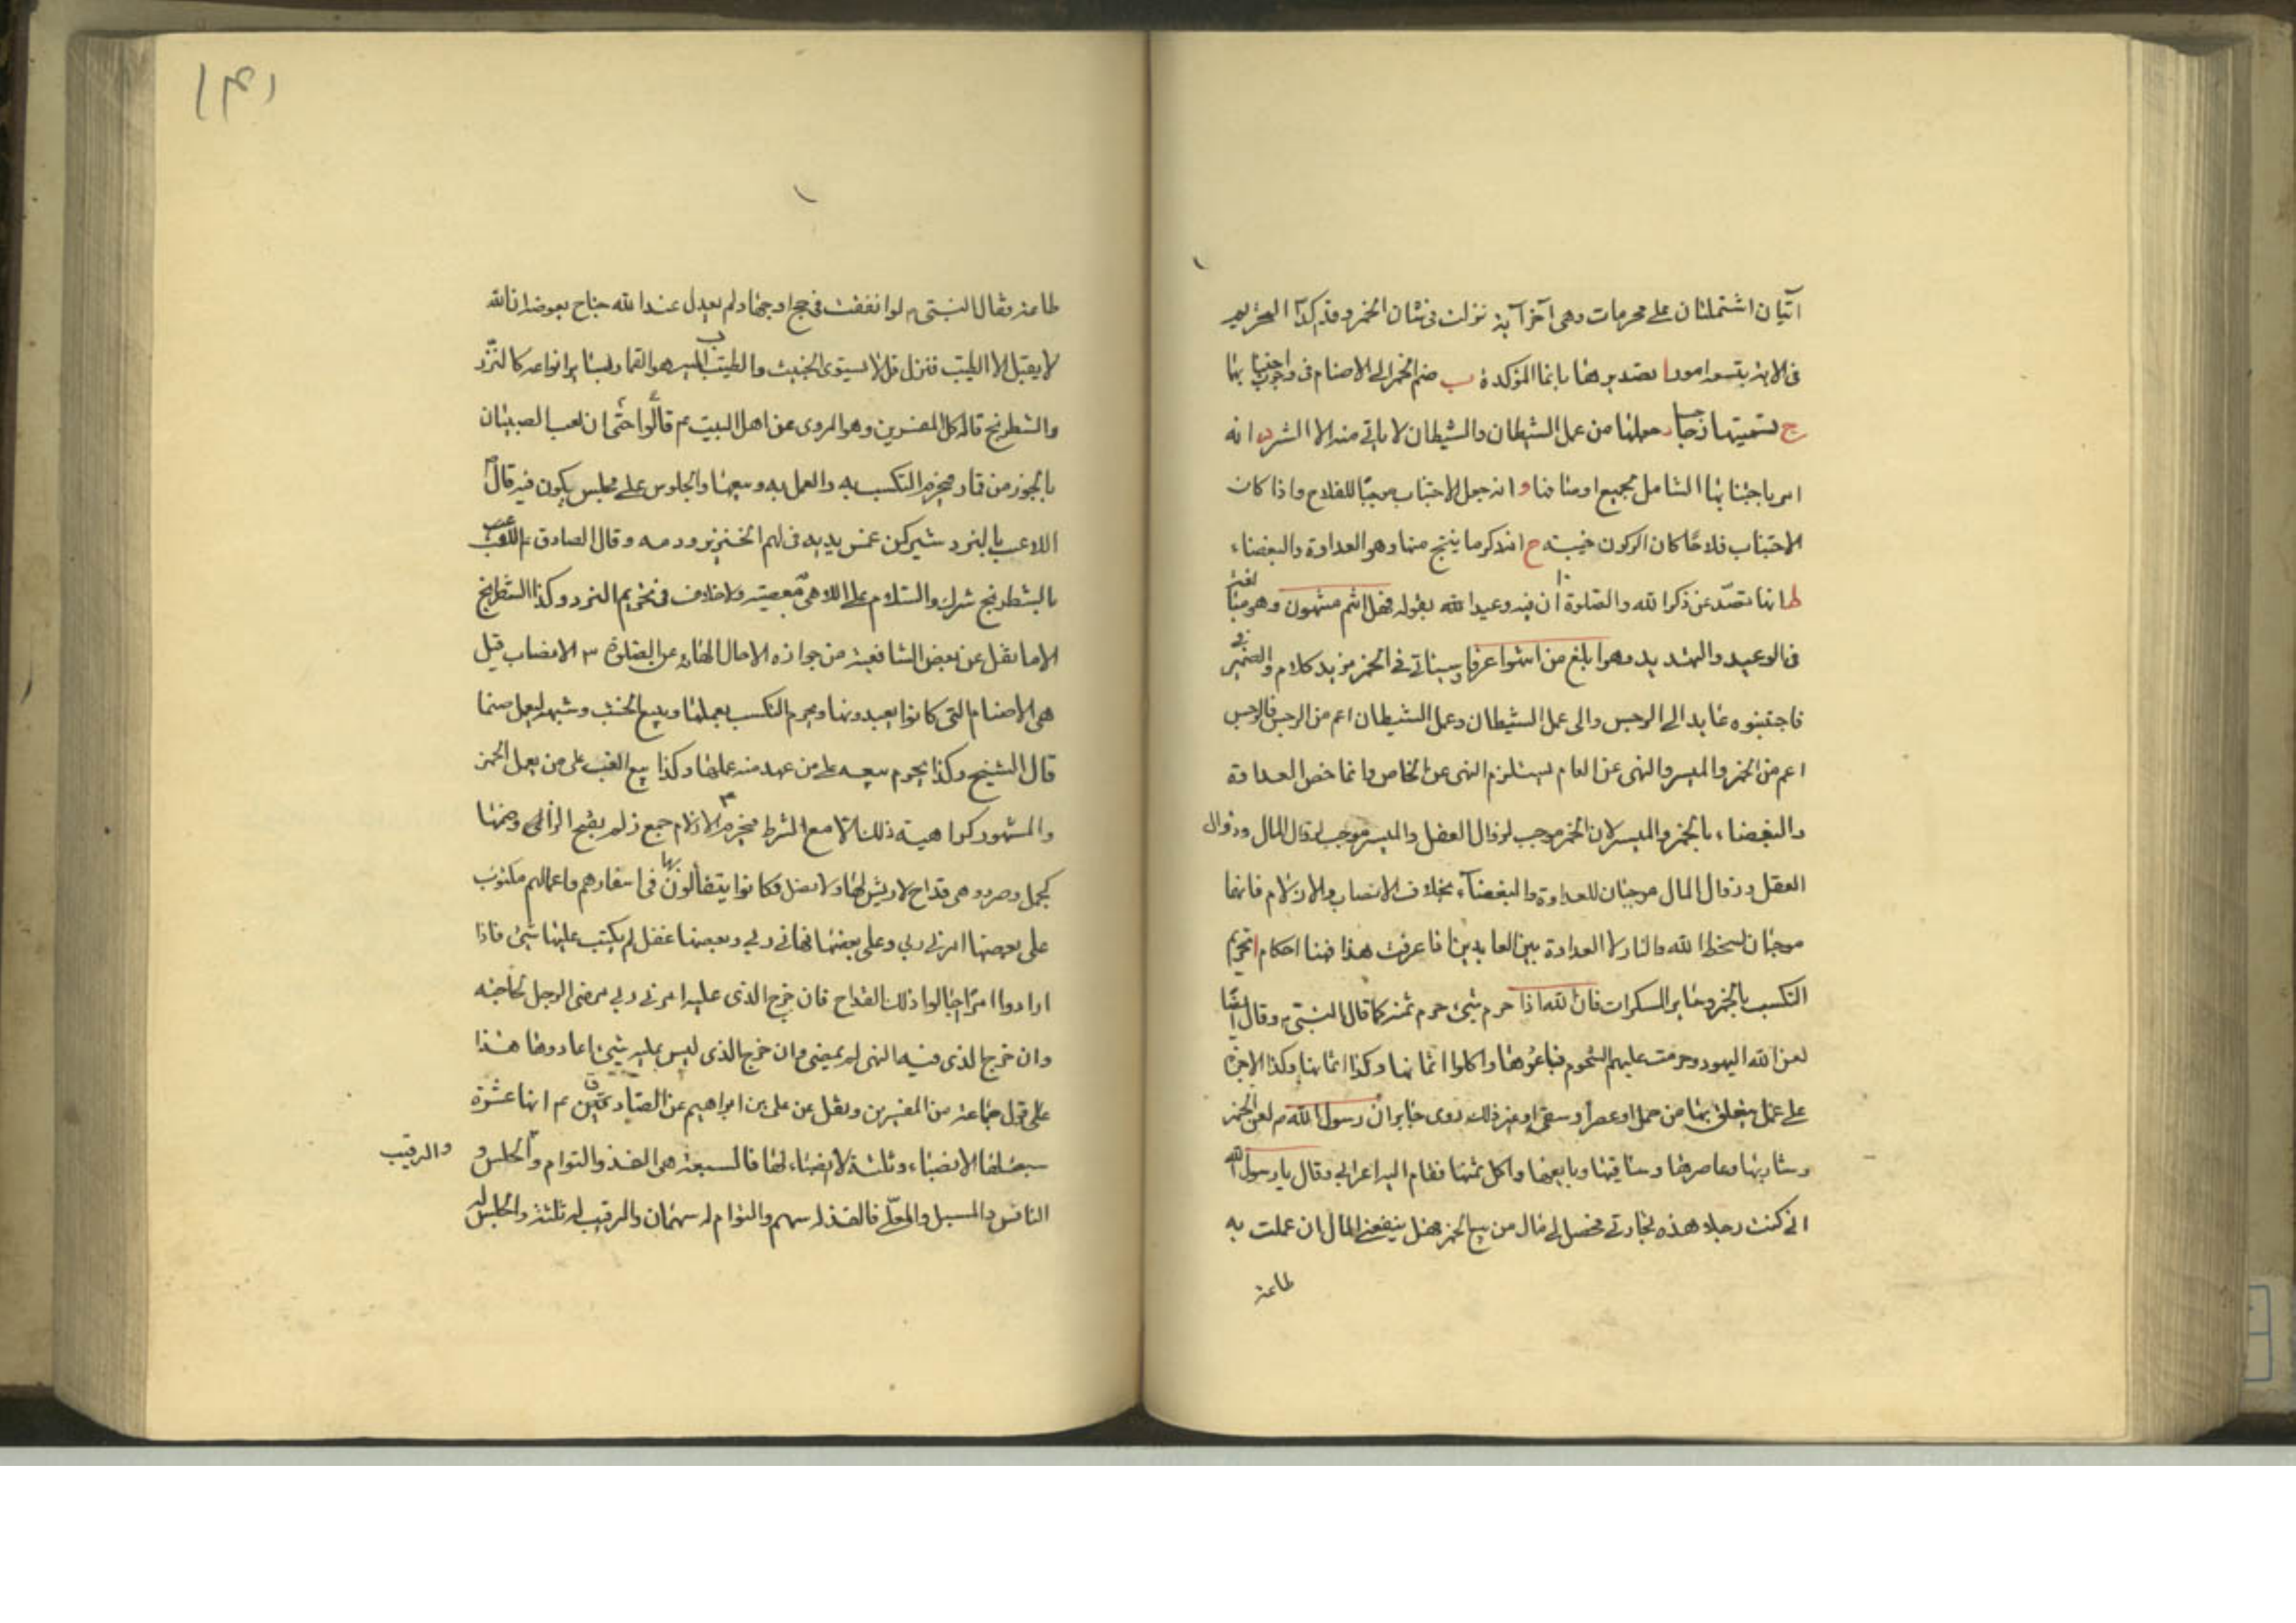 آتيان اشتملتا ن على محرمات وهى آخر آية نزلت فى شان الخمر وقد اكد التحريم
فى الاية بتسعة امور ا تصديرها بانما المؤكدة ب ضم الخمر الى الاصنام فى وجوب اجتنابها
ج تسميتها رجسا د جعلها من عمل الشيطان والشيطان لا ياتى منه الا الشر ه انه
امر باجتنابها الشامل لجميع اوضاعها و انه جعل الاجتناب موجبا للفلاح واذا كان
الاجتناب فلاحا كان الركون خيبة ح انه ذكر ما ينتج منها وهو العداوة والبغضاء
ط انها تصد عن ذكر الله والصلوة ان فيه وعيد الله بقوله فهل انتم منتهون وهو من
فى الوعيد والتهديد وهو ابلغ من انتهوا عرفا وسياتى فى الخمر مزيد كلام والضمير فى
فاجتنبوه عايد الى الرجس والى عمل الشيطان وعمل الشيطان اعم من الرجس فالرجس
اعم من الخمر والميسر والنهى عن العام يستلزم النهى عن الخاص وانما خص العداوة
والبغضاء بالخمر والميسر لان الخمر موجب لزوال العقل والميسر موجب لزوال المال وزوال
العقل وزوال المال موجبان للعداوة والبغضاء بخلاف الانصاب والازلام فانها
موجبان لسخط الله والنار لا العداوة بين العابدين اذا عرفت هذا فهنا احكام ا تحريم
التكسب بالخمر وساير المسكرات فان الله اذا حرم شيئ حرم ثمنه كما قال النبى ص وقال ايضا
لعن الله اليهود حرمت عليهم الشحوم فباعوها واكلوا اثمانها وكذا اثمانها وكذا الاجرة
على عمل يتعلق بها من حمل او عصر او سقى او غير ذلك روى جابر ان رسول الله ص لعن الخمر
وشاربها وعاصرها وساقيها وبايعها واكل ثمنها فقام اليه اعرابى وقال يا رسول الله
انى كنت رجلا هذه تجارتى فحصل لى مال من بيع الخمر فهل ينفعنى المال ان عملت به
طاعة
١٤١
طاعة فقال النبى ص لو انفقته فى حج او جهاد لم يعدل عند الله جناح بعوضة ان الله
لا يقبل الا الطيب فنزل قل لا يستوى الخبيث والطيب ب الميسر هو القمار بساير انواعه كالنرد
والشطرنج قاله كل المفسرين وهو المروى عن اهل البيت عم قالوا حتى ان لعب الصبيان
بالجوز من قمار فيحرم التكسب به والعمل به وبيعها والجلوس على مجلس يكون فيه قال ص
اللاعب بالنرد شير كمن غمس يديه فى لحم الخنزير ودمه وقال الصادق ع اللعب
بالشطرنج شرك والسلام على اللاهى معصية ولا خلاف فى تحريم النرد وكذا الشطرنج
الا ما نقل عن بعض الشافعية من جوازه الا حال الهائه عن الصلوة ٣ الانصاب قيل
هى الاصنام التى كانوا يعبدونها ويحرم التكسب بعملها وبيع الخشب وشبهه ليعمل صنما
قال الشيخ وكذا يحرم بيعه على من عهد منه عملها وكذا بيع العنب على من يعمل الخمر
والمشهور كراهية ذلك الا مع الشرط فيحرم ٤ الازلام جمع زلم بفتح الزاى وضمها
كجمل وصرد وهى قداح لا ريش لها ولا نصل فكانوا يتفألون بها فى اسفارهم واعمالهم مكتوب
على بعضها امرنى ربى وعلى بعضها نهانى ربى وبعضها غفل لم يكتب عليها شيئ فاذا
ارادوا امرا اجالوا ذلك القداح فان خرج الذى عليه امرنى ربى مضى الرجل لحاجته
وان خرج الذى فيه النهى لم يمضى وان خرج الذى ليس عليه شيئ اعادوها هذا
على قول جماعة من المفسرين ونقل عن على بن ابراهيم عن الصادقين عم انها عشرة
سبعة لها الانصباء وثلثة لا انصباء لها فالسبعة هى الفذ والتوام والحلس و
والرقيب
النافس والمسبل والمعلى فالفذ له سهم والتوام له سهمان والرقيب له ثلثة والحلس له